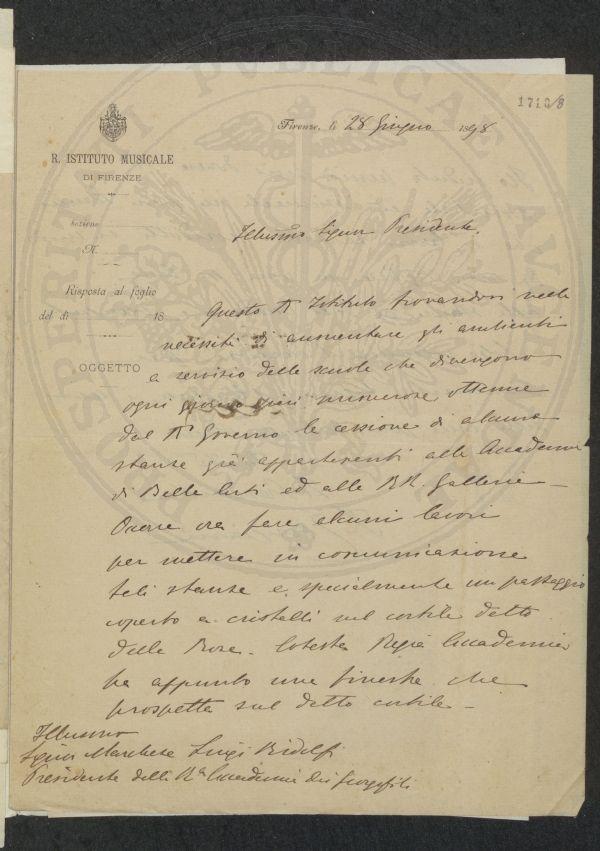 1710/8
Firenze, li 28 Giugno 1898
R. ISTITUTO MUSICALE
DI FIRENZE
Sezione
N.
Risposta al foglio
del dì 18
OGGETTO
Illusmo Signor Presidente,
Questo R Istituto trovandosi nella
necessità di aumentare gli ambienti
a servizio delle scuole che divengono
ogni giorno più numerose ottenne
dal R Governo la cessione di alcune
stanze già appartenenti alla Accademia
di Belle Arti ed alle RR. Gallerie _
Occorre ora fare alcuni lavori
per mettere in comunicazione
tali stanze e specialmente un passaggio
coperto a cristalli sul cortile detto
delle . Cotesta Regia Accademia
ha appunto una finestra che
prospetta sul detto cortile _
Illusmo
Signor Marchese Luigi Ridolfi
Presidente della Ra Accademia dei Georgofili